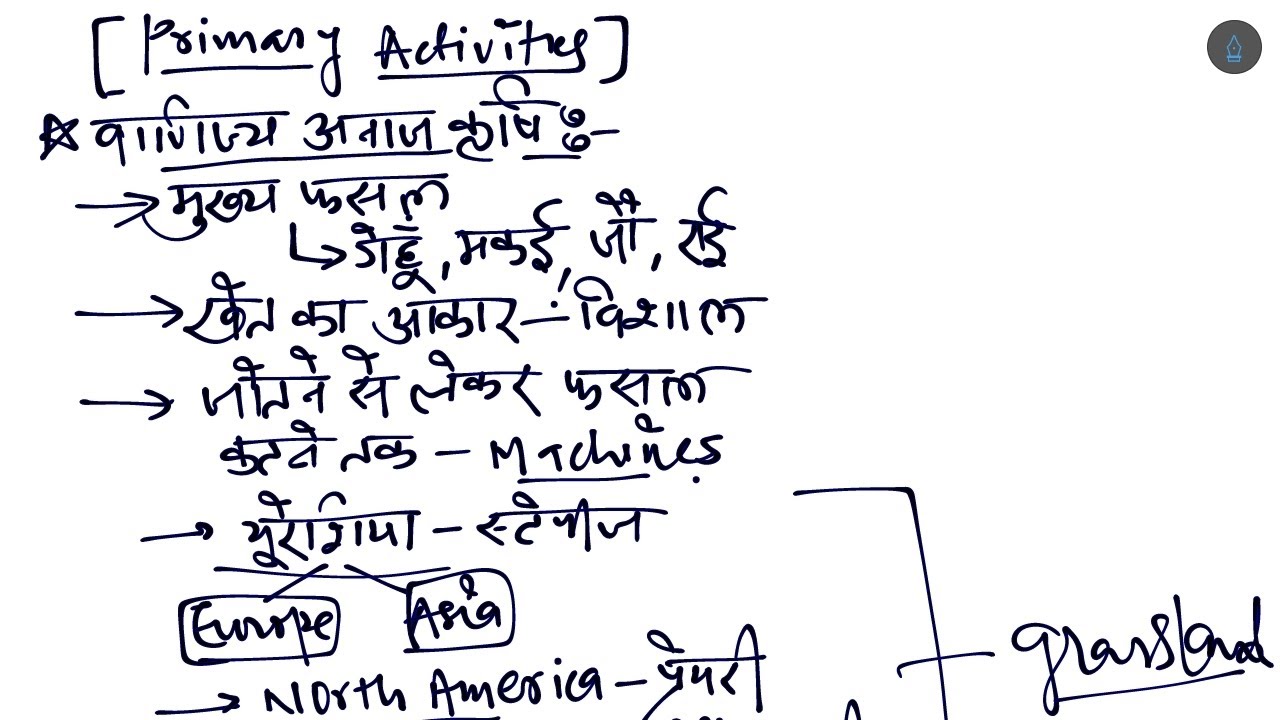 [Primary Activities]
☆ वाणिज्य अनाज कृषि :-
→ मुख्य फसल
↳ गेहूँ, मकई, जौ, राई
→ खेत का आकार - विशाल
→ जोतने से लेकर फसल
कटने तक - Machines
→ यूरेशिया - स्टेपीज
Europe Asia
→ North America - प्रेयरी
grassland